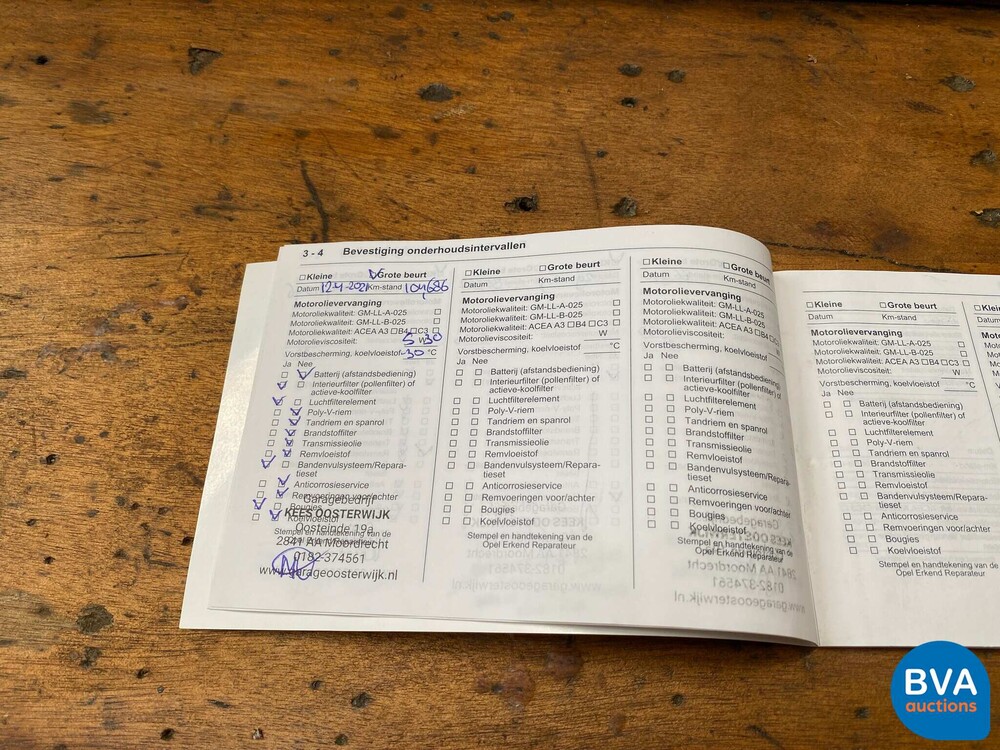 3 - 4 Bevestiging onderhoudsintervallen
Kleine Grote beurt
Datum 12-4-2021 Km-stand 104686
Motorolievervanging
Motoroliekwaliteit: GM-LL-A-025
Motoroliekwaliteit: GM-LL-B-025
Motoroliekwaliteit: ACEA A3 B4 C3
Motorolieviscositeit: 5 W 30
Vorstbescherming, koelvloeistof -30 °C
Ja Nee
Batterij (afstandsbediening)
Interieurfilter (pollenfilter) of
actieve-koolfilter
Luchtfilterelement
Poly-V-riem
Tandriem en spanrol
Brandstoffilter
Transmissieolie
Remvloeistof
Bandenvulsysteem/Repara-
tieset
Anticorrosieservice
Remvoeringen voor/achter
Bougies
Koelvloeistof
Garagebedrijf
KEES OOSTERWIJK
Oosteinde 19a
2841 AA Moordrecht
0182-374561
www.garageoosterwijk.nl
Kleine Grote beurt
Datum Km-stand
Motorolievervanging
Motoroliekwaliteit: GM-LL-A-025
Motoroliekwaliteit: GM-LL-B-025
Motoroliekwaliteit: ACEA A3 B4 C3
Motorolieviscositeit: W
Vorstbescherming, koelvloeistof °C
Ja Nee
Batterij (afstandsbediening)
Interieurfilter (pollenfilter) of
actieve-koolfilter
Luchtfilterelement
Poly-V-riem
Tandriem en spanrol
Brandstoffilter
Transmissieolie
Remvloeistof
Bandenvulsysteem/Repara-
tieset
Anticorrosieservice
Remvoeringen voor/achter
Bougies
Koelvloeistof
Stempel en handtekening van de
Opel Erkend Reparateur
Kleine Grote beurt
Datum Km-stand
Motorolievervanging
Motoroliekwaliteit: GM-LL-A-025
Motoroliekwaliteit: GM-LL-B-025
Motoroliekwaliteit: ACEA A3 B4 C3
Motorolieviscositeit: W
Vorstbescherming, koelvloeistof °C
Ja Nee
Batterij (afstandsbediening)
Interieurfilter (pollenfilter) of
actieve-koolfilter
Luchtfilterelement
Poly-V-riem
Tandriem en spanrol
Brandstoffilter
Transmissieolie
Remvloeistof
Bandenvulsysteem/Repara-
tieset
Anticorrosieservice
Remvoeringen voor/achter
Bougies
Koelvloeistof
Stempel en handtekening van de
Opel Erkend Reparateur
Kleine Grote beurt
Datum Km-stand
Motorolievervanging
Motoroliekwaliteit: GM-LL-A-025
Motoroliekwaliteit: GM-LL-B-025
Motoroliekwaliteit: ACEA A3 B4 C3
Motorolieviscositeit: W
Vorstbescherming, koelvloeistof °C
Ja Nee
Batterij (afstandsbediening)
Interieurfilter (pollenfilter) of
actieve-koolfilter
Luchtfilterelement
Poly-V-riem
Tandriem en spanrol
Brandstoffilter
Transmissieolie
Remvloeistof
Bandenvulsysteem/Repara-
tieset
Anticorrosieservice
Remvoeringen voor/achter
Bougies
Koelvloeistof
Stempel en handtekening van de
Opel Erkend Reparateur
BVA
auctions